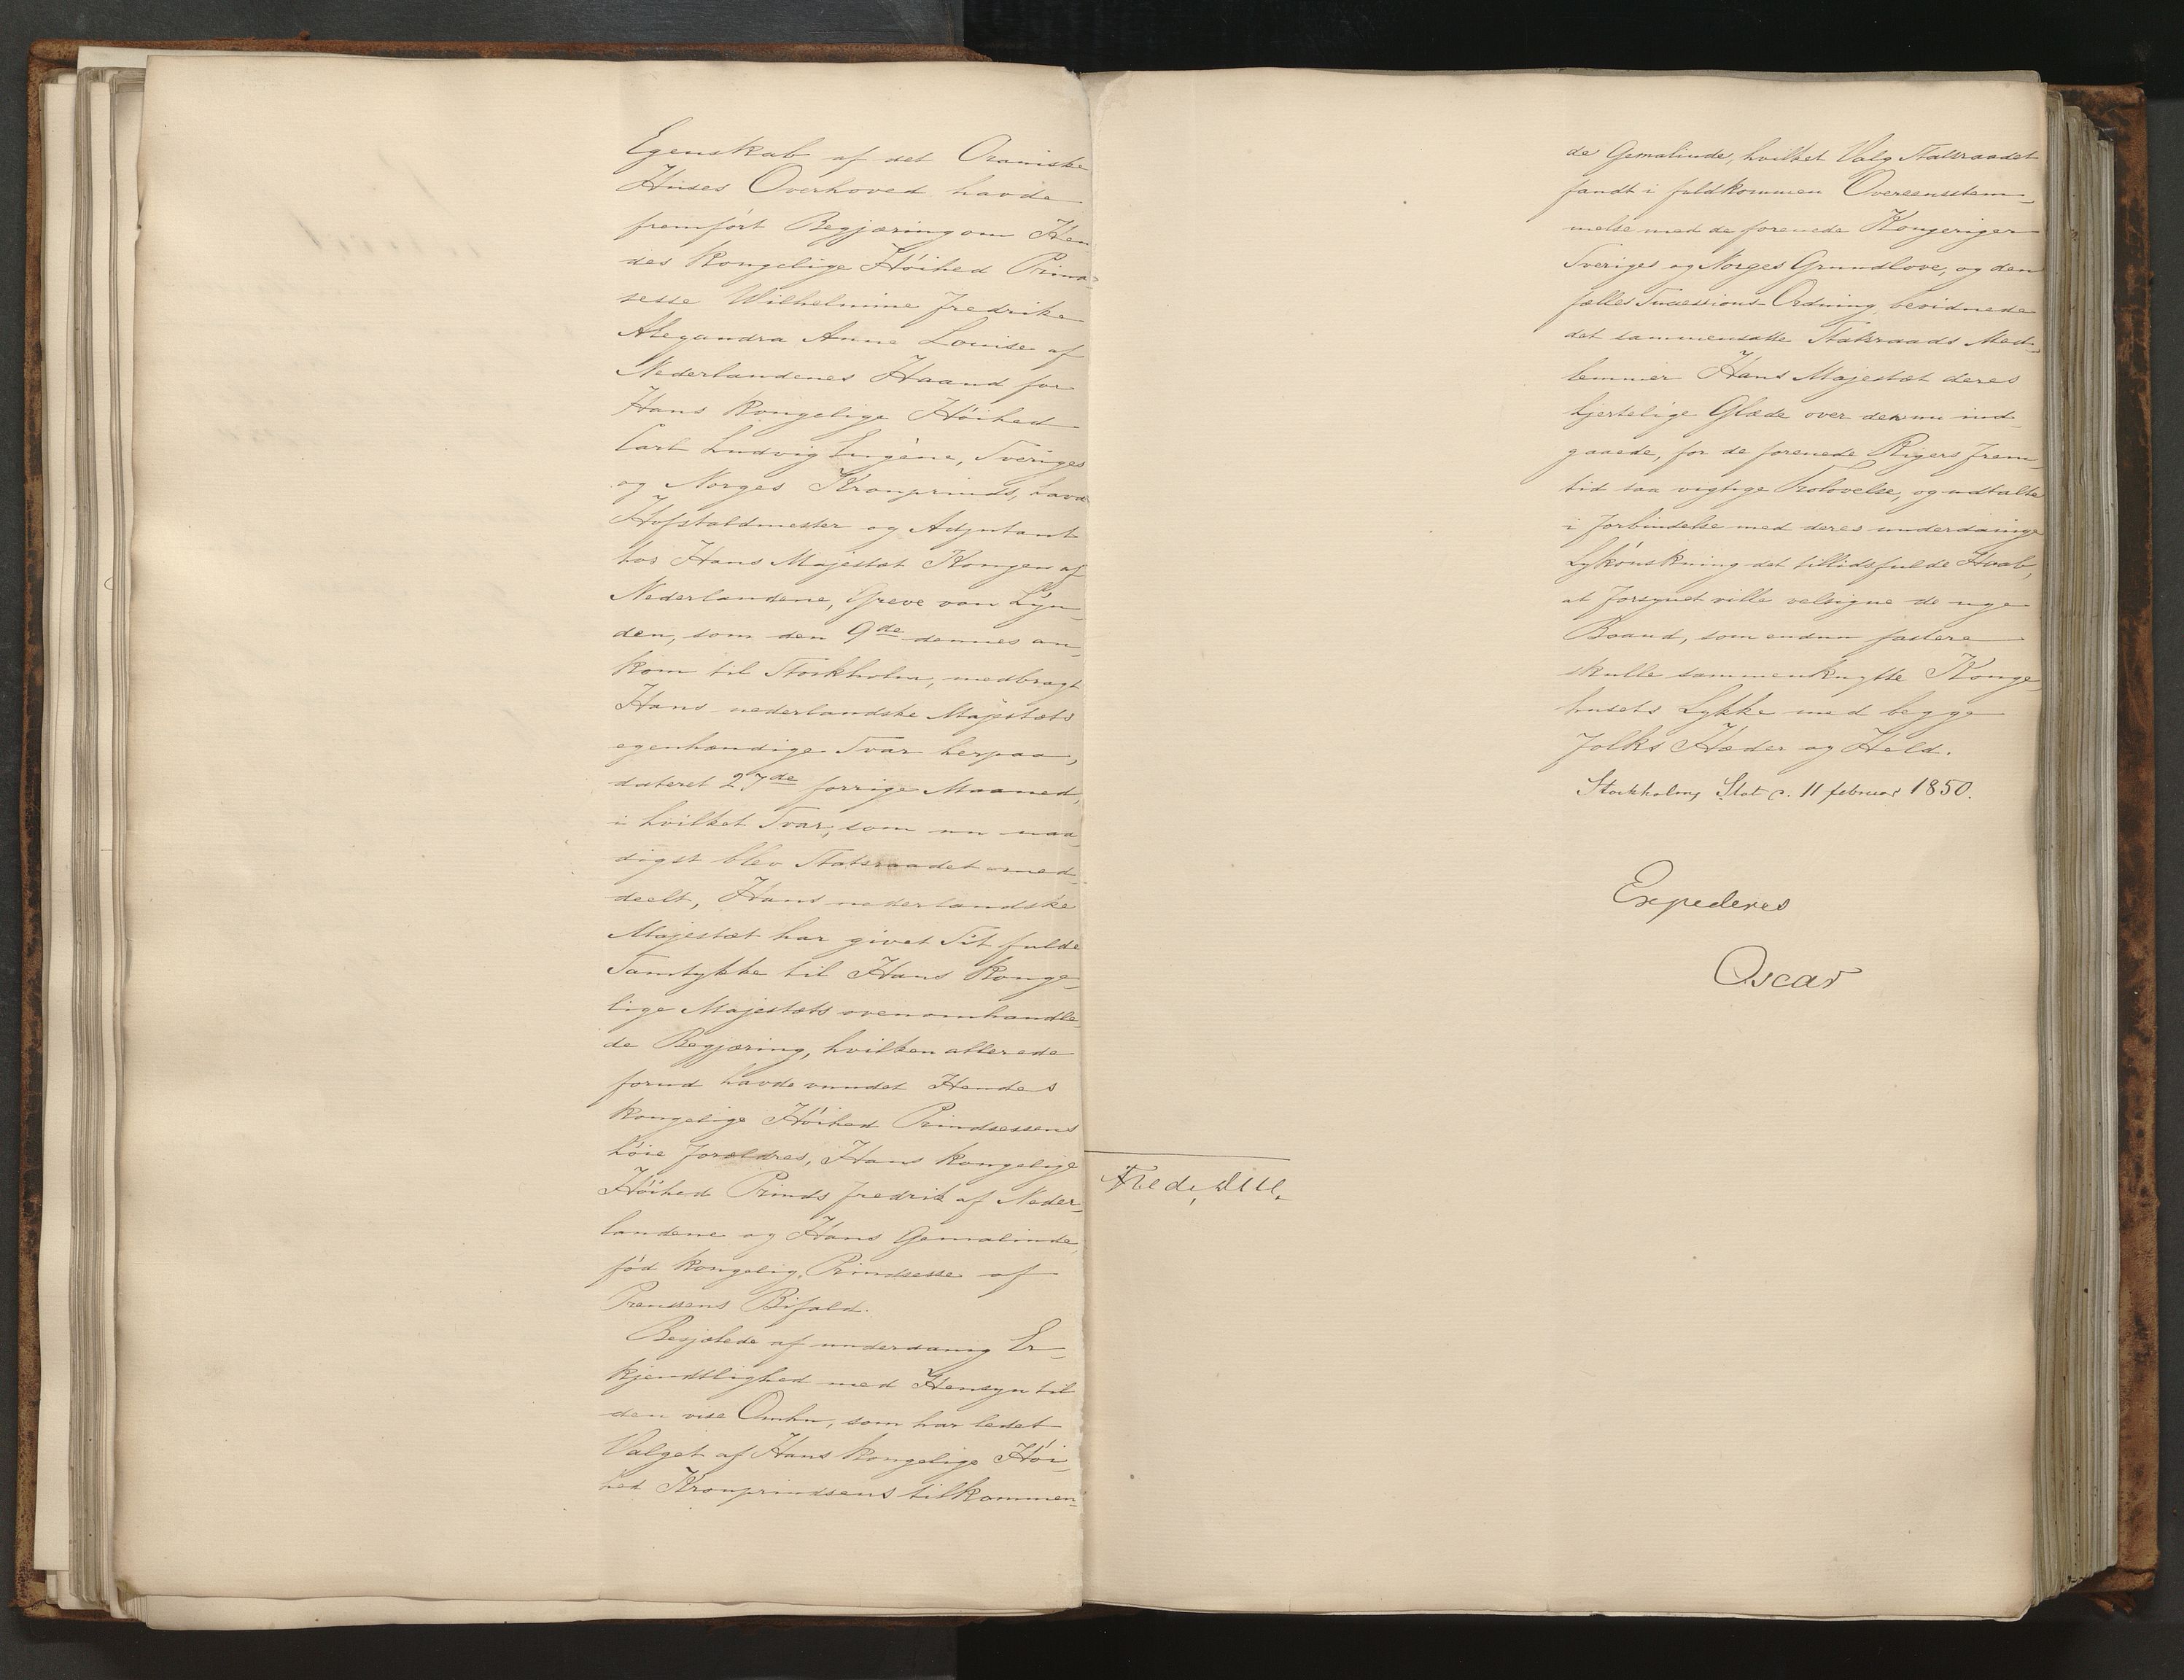 Egenskab af det Oraniske
Huses Overhoved havde
fremført Begjæring om Hen
des Kongelige Høihed Prind-
sesse Wilhelmine Fredrike
Alexandra Anne Louise af
Nederlandenes Haand for
Hans Kongelige Høihed
Carl Ludvig Eugène, Sveriges
og Norges Kronprinds, havde
Hofstaldmester og Adjutant
hos Hans Majestæt Kongen af
Nederlandene, Greve van Lyn-
den, som den 9de dennes an-
kom til Stockholm, medbragt
Hans nederlandske Majestæts
egenhændige Svar herpaa,
dateret 27de forrige Maaned,
i hvilket Svar, som nu naa-
digst blev Statsraadet med-
deelt, Hans nederlandske
Majestæt har givet Sit fulde
Samtykke til Hans Konge-
lige Majestæts ovenomhandle-
de Begjæring, hvilken allerede
forud havde vundet Hendes
Kongelige Høihed Prindsessens
høie Forældres, Hans Kongelige
Høihed Prinds Fredrik af Neder-
landene og Hans Gemalinde,
fød Kongelig Prindsesse af
Preussens Bifald.
Besjælede af underdanig Er-
kjendtlighed med Hensyn til
den vise Omhu, som har ledet
Valget af Hans Kongelige Høi-
hed Kronprindsens tilkommen-
de Gemalinde, hvilket Valg Statsraadet
fandt i fuldkommen Overeensstem-
melse med de forenede Kongeriger
Sveriges og Norges Grundlove, og den
fælles Successions-Ordning, bevidnede
det sammensatte Statsraads Med-
lemmer Hans Majestæt deres
hjertelige Glæde over den nu ind-
gaaede, for de forenede Rigers Frem-
tid saa vigtige Trolovelse, og udtalte
i Forbindelse med deres underdanige
Lykønskning det tillidsfulde Haab,
at Forsynet ville velsigne de nye
Baand, som endnu fastere
skulle sammenknytte Konge-
husets Lykke med begge
Folks Hæder og Held.
Stockholms Slot d. 11 februar 1850.
Expederes
Oscar